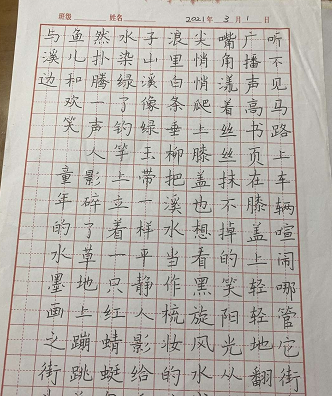 班级 姓名 2021年 3月 1日
听不见马路上车辆喧闹哪管它街
广播声高书页在膝盖上轻轻地翻
嘴角漾着丝丝抹不掉的笑阳光从
尖悄悄爬上膝盖也想看黑旋风水
浪里白条垂柳把溪水当作梳妆的
子山溪像绿玉带一样平静人影给
水染绿了钓竿上立着一只红蜻蜓
然扑腾一声人影碎了草地上蹦跳
鱼儿和欢笑童年的水墨画之街
与溪边